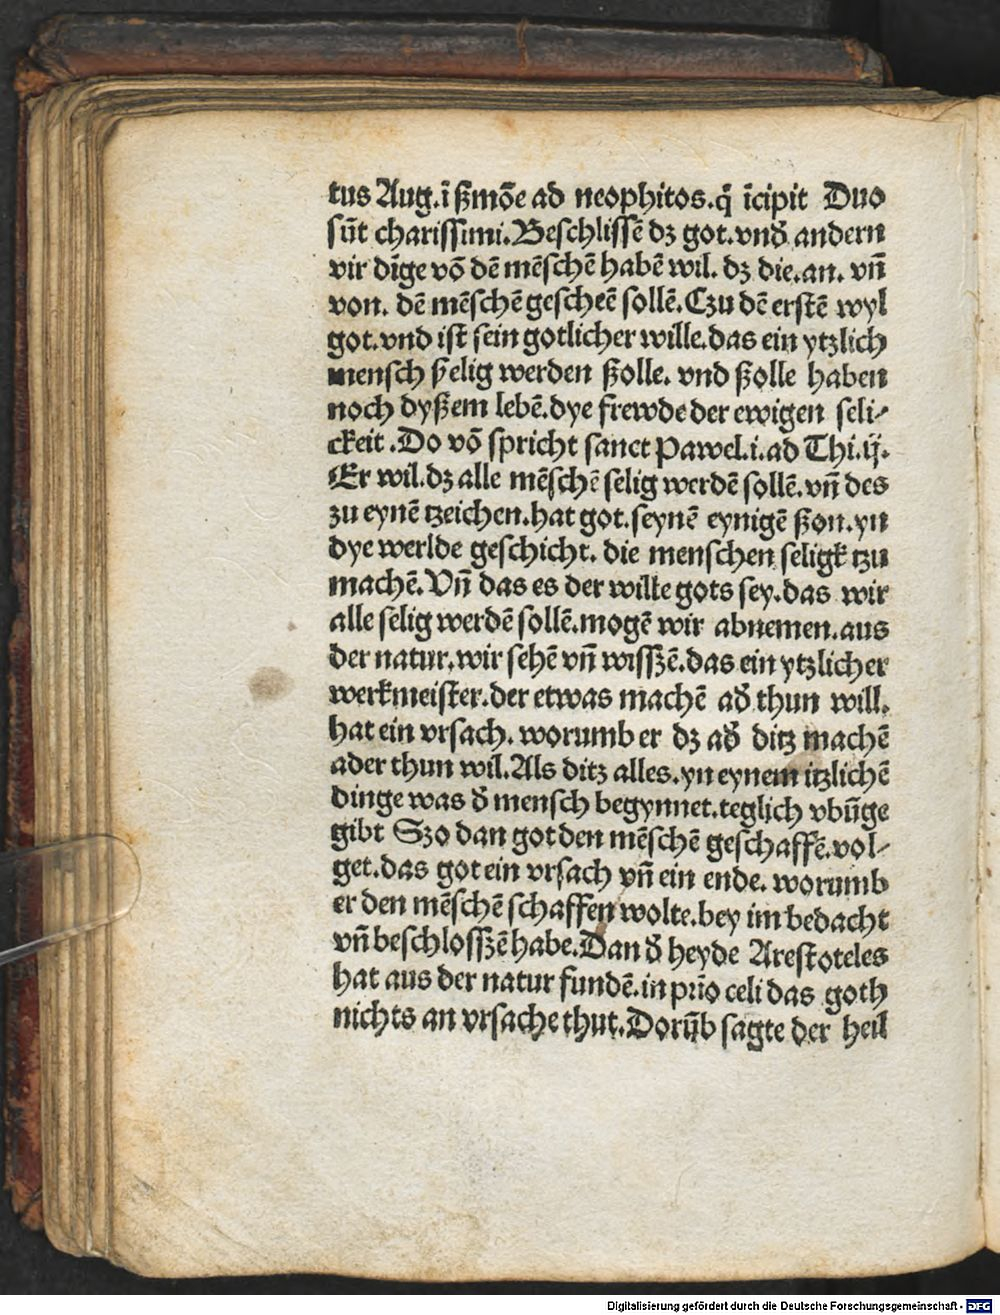 tus Aug.ī ßmōe ad neophitos.q̄ īcipit Duo
sūt charissimi.Beschlissē dz got.vnd̄ andern
vir dīge vō dē mēschē habē wil. dz die.an. vn̄
von. dē mēschē gescheē sollē.Czu dē erstē wyl
got.vnd ist sein gotlicher wille.das ein ytzlich
mensch selig werden ßolle. vnd ßolle haben
noch dyßem lebē.dye frewde der ewigen seli⸗
ckeit.Do vō spricht sanct Pawel.i.ad Thi.ij.
Er wil.dz alle mēschē selig werdē sollē.vn̄ des
zu eynē tzeichen.hat got.seynē eynigē ßon.yn
dye werlde geschicht. die menschen seligk̄ tzu
machē.Vn̄ das es der wille gots sey.das wir
alle selig werdē sollē.mogē wir abnemen.aus
der natur.wir sehē vn̄ wissʒē.das ein ytzlicher
werkmeister.der etwas machē ad̄ thun will.
hat ein vrsach. worumb er dz ad̄ ditz machē
ader thun wil.Als ditz alles.yn eynem itzlichē
dinge was d̄ mensch begynnet.teglich vbūge
gibt Szo dan got den mēschē geschaffē.vol⸗
get.das got ein vrsach vn̄ ein ende. worumb
er den mēschē schaffen wolte.bey im bedacht
vn̄ beschlossʒē habe.Dan d̄ heyde Arestoteles
hat aus der natur fundē.in prīo celi das goth
nichts an vrsache thut.Dorūb sagte der heil
Digitalisierung gefördert durch die Deutsche Forschungsgemeinschaft - DFG